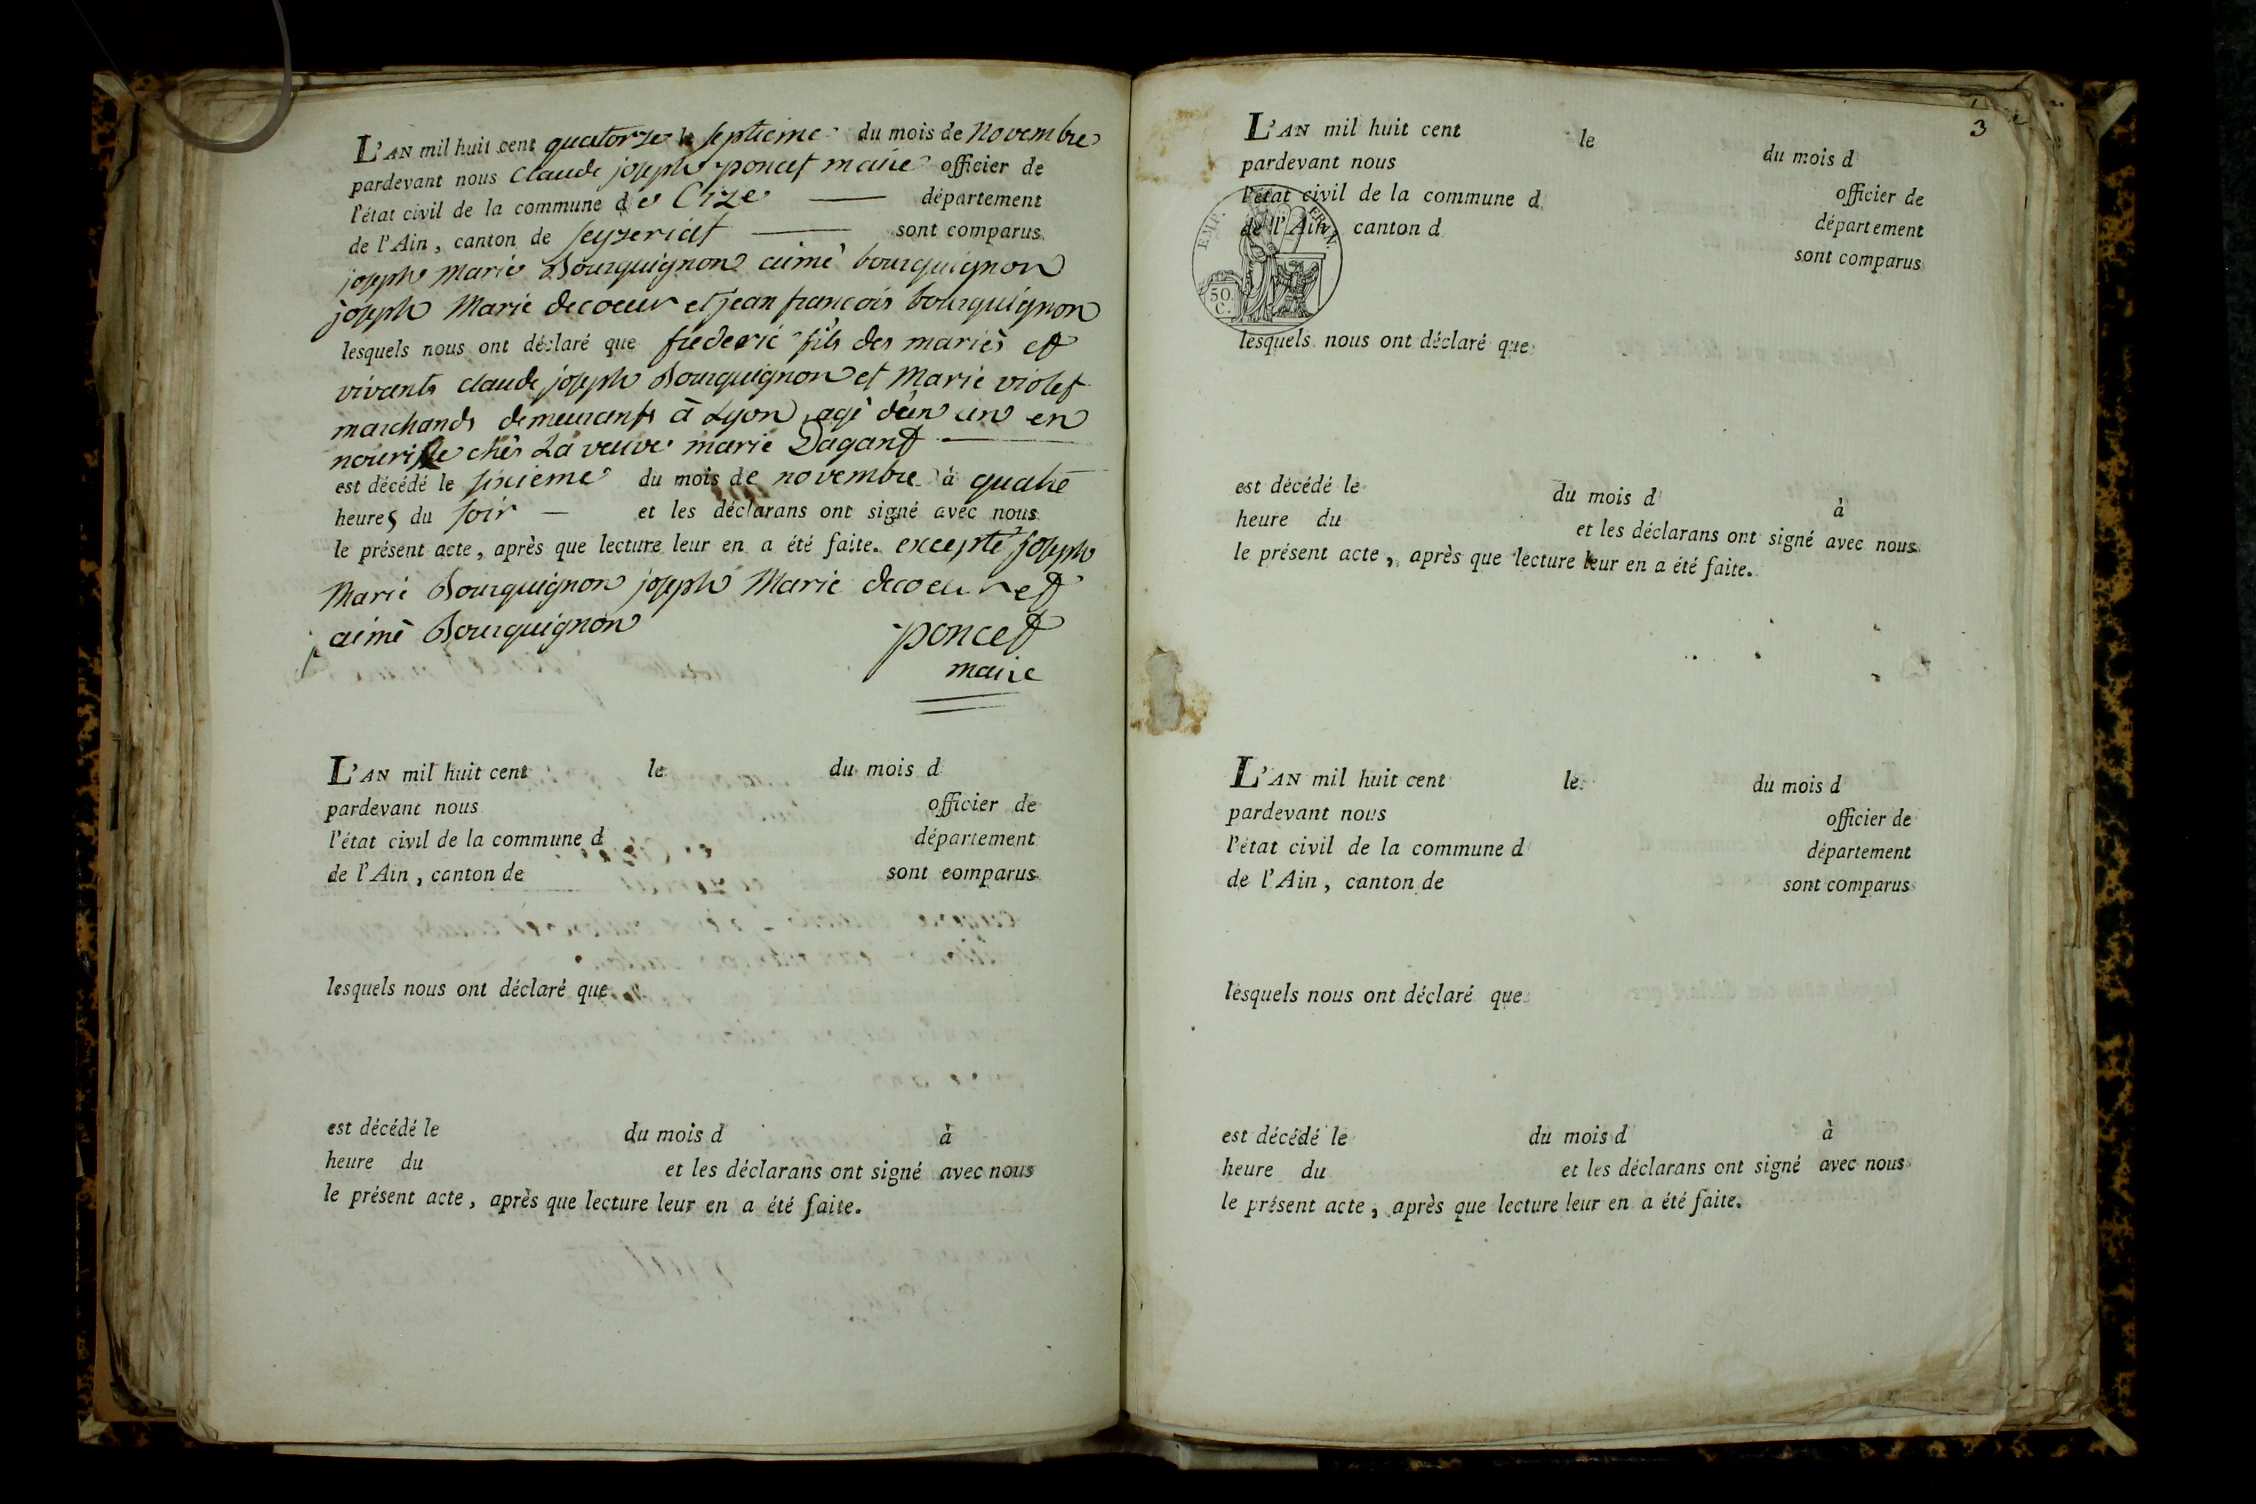 L'AN mil huit cent quatorze le septieme du mois de Novembre
pardevant nous Claude joseph poncet maire officier de
l'état civil de la commune de Cize département
de l'Ain, canton de seyzeriat sont comparus
joseph Marie Bourguignon aimé bourguignon
joseph Marie decoeur et jean francois bourguignon
lesquels nous ont déclaré que frederic fils des mariés et
vivants claude joseph Bourguignon et Marie violet
marchands demeurants à Lyon agé d'un an en
nourisse chés La veuve marie Dagant
est décédé le sixieme du mois de novembre à quatre
heures du soir et les déclarans ont signé avec nous
le présent acte, après que lecture leur en a été faite. excepté joseph
Marie Bourguignon joseph Marie decoeur et
aimé Bourguignon
poncet
maire
L'AN mil huit cent le du mois d
pardevant nous officier de
l'état civil de la commune d département
de l'Ain, canton de sont comparus
lesquels nous ont déclaré que
est décédé le du mois d à
heure du et les déclarans ont signé avec nous
le présent acte, après que lecture leur en a été faite.
3
L'AN mil huit cent le du mois d
pardevant nous officier de
l'état civil de la commune d département
de l'Ain, canton d sont comparus
EMP. FRAN.
50
C.
lesquels nous ont déclaré que
est décédé le du mois d à
heure du et les déclarans ont signé avec nous
le présent acte, après que lecture leur en a été faite.
L'AN mil huit cent le du mois d
pardevant nous officier de
l'état civil de la commune d département
de l'Ain, canton de sont comparus
lesquels nous ont déclaré que
est décédé le du mois d à
heure du et les déclarans ont signé avec nous
le présent acte, après que lecture leur en a été faite.